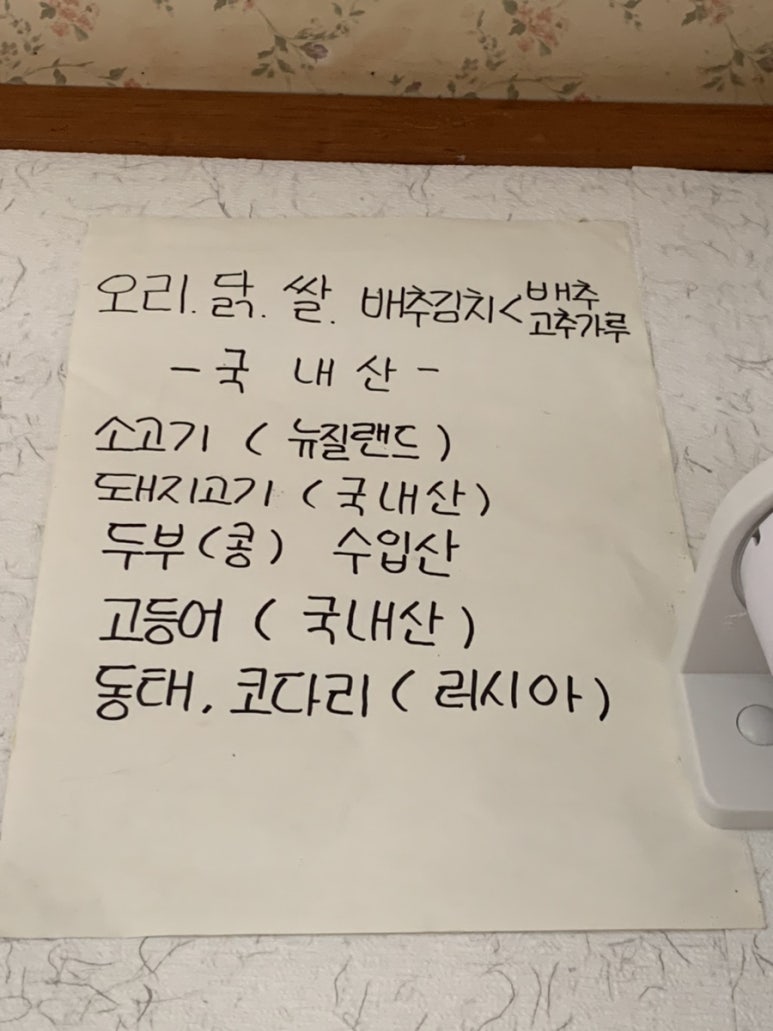 오리. 닭. 쌀. 배추김치< 배추
고추가루
- 국 내 산 -
소고기 ( 뉴질랜드 )
돼지고기 ( 국내산 )
두부(콩) 수입산
고등어 ( 국내산 )
동태, 코다리 ( 러시아 )